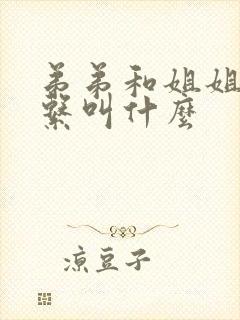 弟弟和姐姐
繫叫什麼
涼豆子